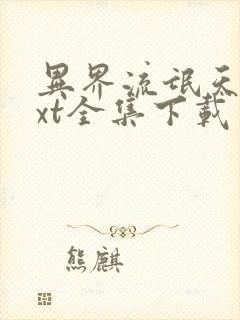 異界流氓天
xt全集下載
熊麒